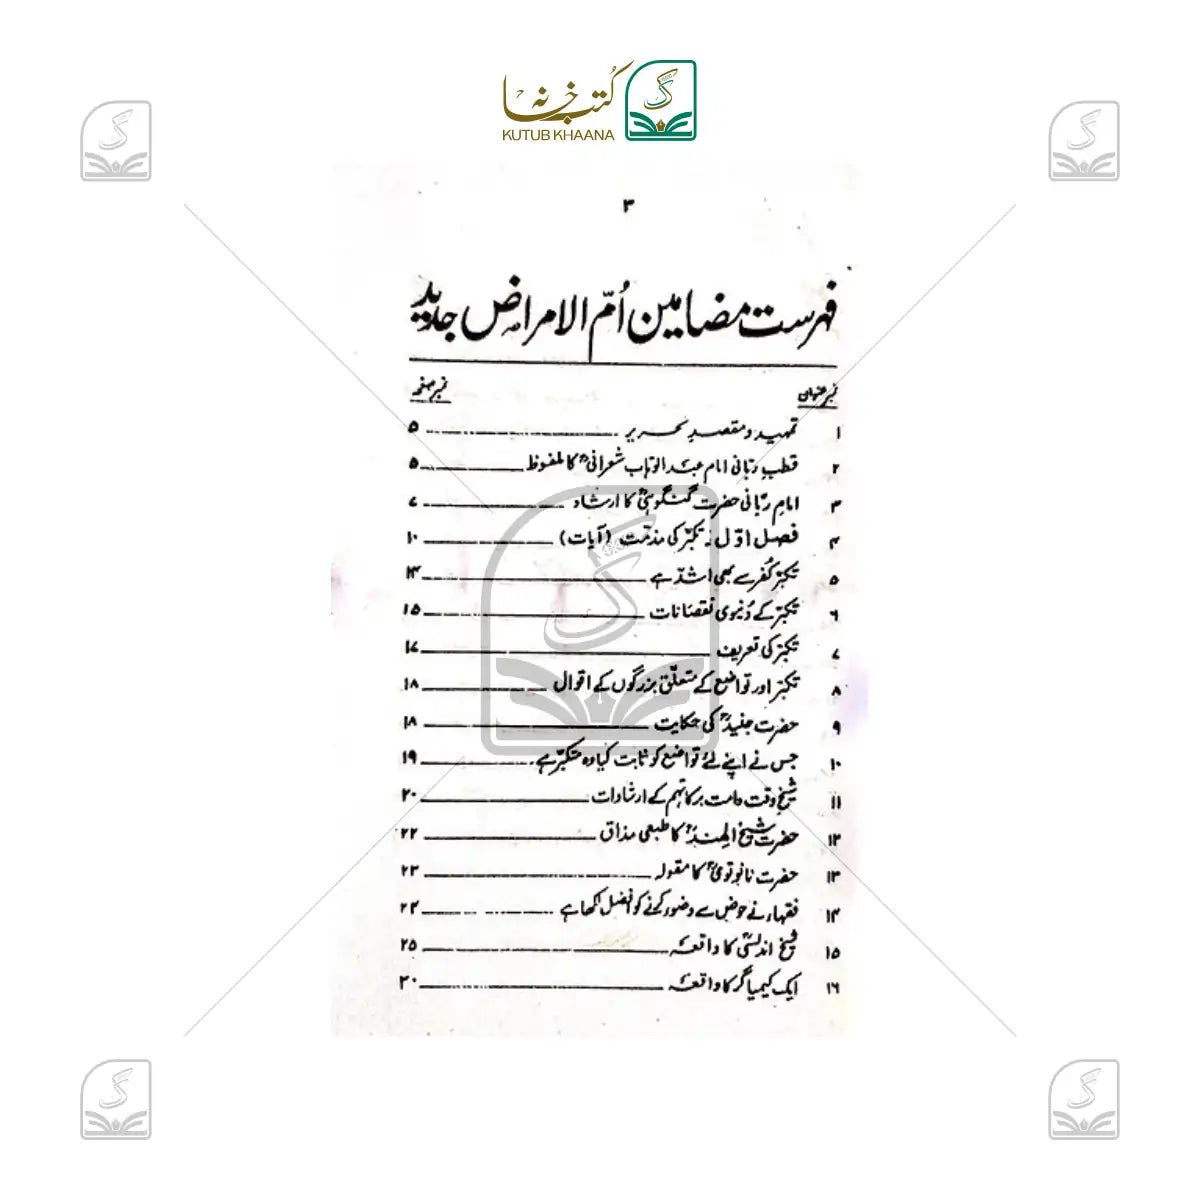 کتب خانہ
KUTUB KHAANA
۳
فہرست مضامین اُمّ الامراض جدید
نمبر عنوان نمبر صفحہ
۱ تمہید و مقصدِ تحریر ۵
۲ قطب ربّانی امام عبدالوہاب شعرانیؒ کا ملفوظ ۵
۳ امامِ ربّانی حضرت گنگوہیؒ کا ارشاد ۷
۴ فصل اوّل: تکبّر کی مذمّت (آیات) ۱۰
۵ تکبّر کُفر سے بھی اشدّ ہے ۱۴
۶ تکبّر کے دُنیوی نقصانات ۱۵
۷ تکبّر کی تعریف ۱۷
۸ تکبّر اور تواضع کے متعلّق بزرگوں کے اقوال ۱۸
۹ حضرت جنیدؒ کی حکایت ۱۸
۱۰ جس نے اپنے لئے تواضع کو ثابت کیا وہ متکبّر ہے ۱۹
۱۱ شیخِ وقت دامت برکاتہم کے ارشادات ۲۰
۱۲ حضرت شیخ الہندؒ کا طبعی مذاق ۲۲
۱۳ حضرت نانوتویؒ کا مقولہ ۲۳
۱۴ فقہاء نے حوض سے وضو کرنے کو افضل لکھا ہے ۲۴
۱۵ شیخ اندلسیؒ کا واقعہ ۲۵
۱۶ ایک کیمیاگر کا واقعہ ۳۰